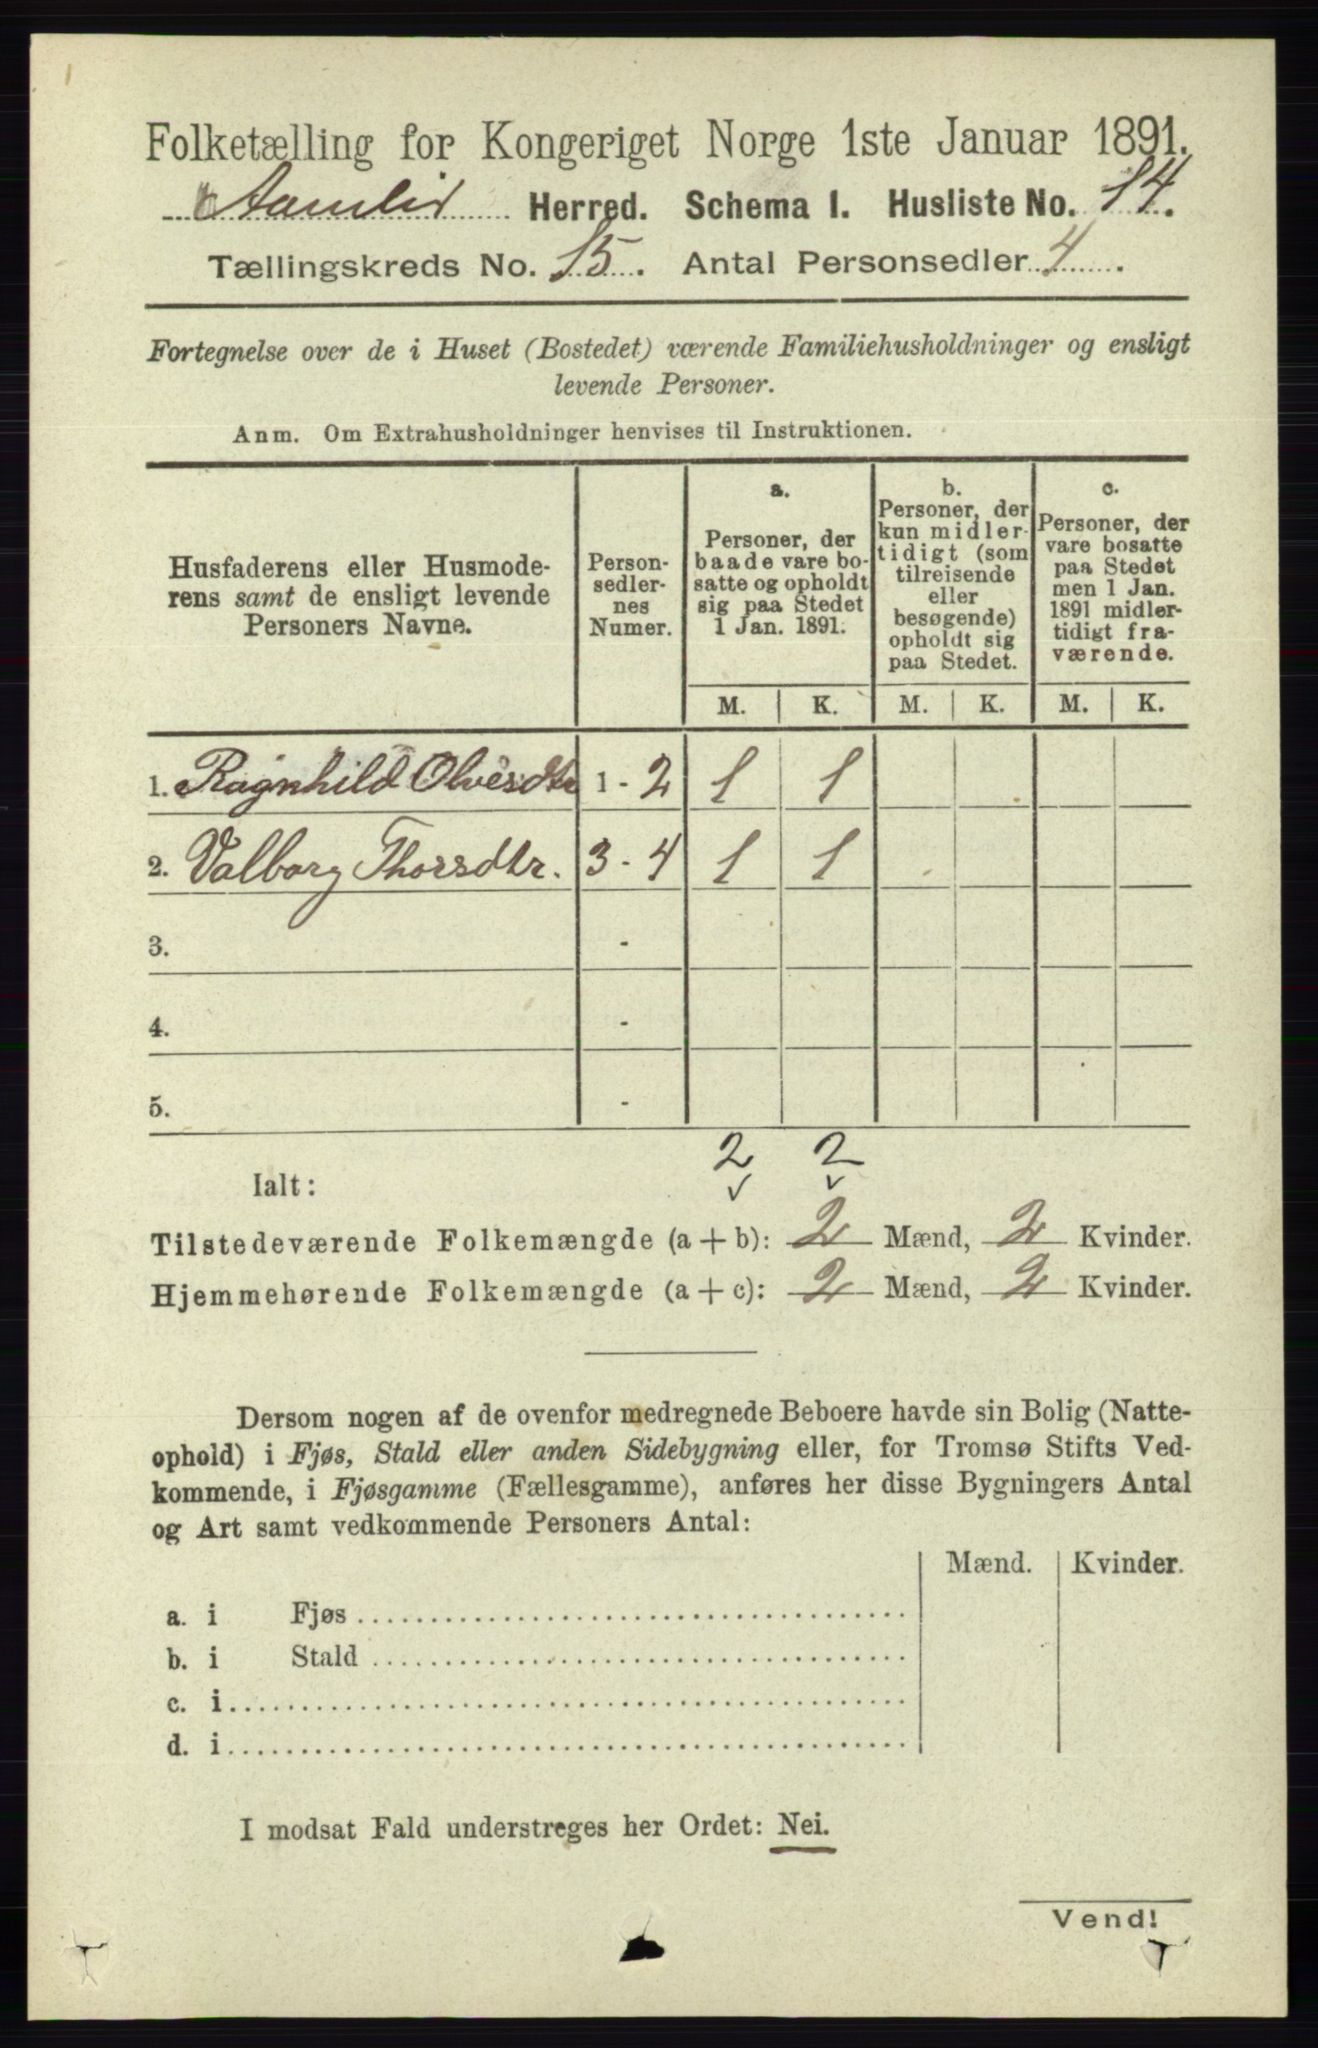 Folketælling for Kongeriget Norge 1ste Januar 1891.
Aamlid Herred. Schema I. Husliste No. 14.
Tællingskreds No. 15. Antal Personsedler 4.
Fortegnelse over de i Huset (Bostedet) værende Familiehusholdninger og ensligt
levende Personer.
Anm. Om Extrahusholdninger henvises til Instruktionen.
Husfaderens eller Husmode-
rens samt de ensligt levende
Personers Navne.
Person-
sedler-
nes
Numer.
a.
Personer, der
baade vare bo-
satte og opholdt
sig paa Stedet
1 Jan. 1891.
b.
Personer, der
kun midler-
tidigt (som
tilreisende
eller
besøgende)
opholdt sig
paa Stedet.
c.
Personer, der
vare bosatte
paa Stedet
men 1 Jan.
1891 midler-
tidigt fra-
værende.
M. K. M. K. M. K.
1. Ragnhild Olvesdtr 1 - 2 1 1
2. Valborg Thorsdtr. 3 - 4 1 1
3. -
4. -
5. -
2 2
Ialt:
Tilstedeværende Folkemængde (a + b): 2 Mænd, 2 Kvinder.
Hjemmehørende Folkemængde (a + c): 2 Mænd, 2 Kvinder.
Dersom nogen af de ovenfor medregnede Beboere havde sin Bolig (Natte-
ophold) i Fjøs, Stald eller anden Sidebygning eller, for Tromsø Stifts Ved-
kommende, i Fjøsgamme (Fællesgamme), anføres her disse Bygningers Antal
og Art samt vedkommende Personers Antal:
Mænd. Kvinder.
a. i Fjøs
b. i Stald
c. i
d. i
I modsat Fald understreges her Ordet: Nei.
Vend!